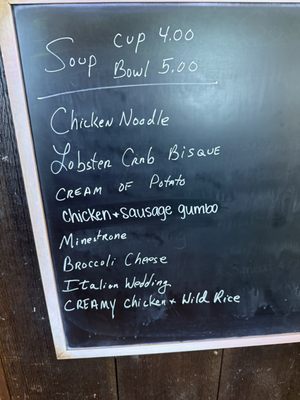 Soup Cup 4.00
Bowl 5.00
Chicken Noodle
Lobster Crab Bisque
CREAM OF Potato
chicken + sausage gumbo
Minestrone
Broccoli Cheese
Italian Wedding
CREAMY Chicken + Wild Rice